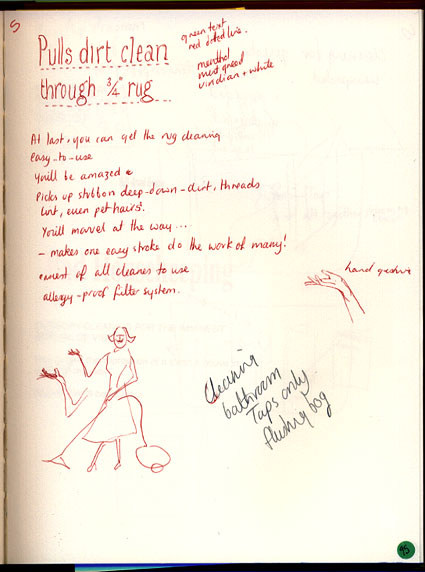 5
Pulls dirt clean
through 3/4" rug
green text
red dotted line.
menthol
mint green
viridian + white
At last, you can get the rug cleaning
easy-to-use
You'll be amazed
Picks up stubborn deep-down-dirt, threads
lint, even pet hairs!
You'll marvel at the way....
- makes one easy stroke do the work of many!
easiest of all cleaners to use
allergy-proof filter system.
hand gesture
Cleaning
bathroom
Taps only
flushing bog
95